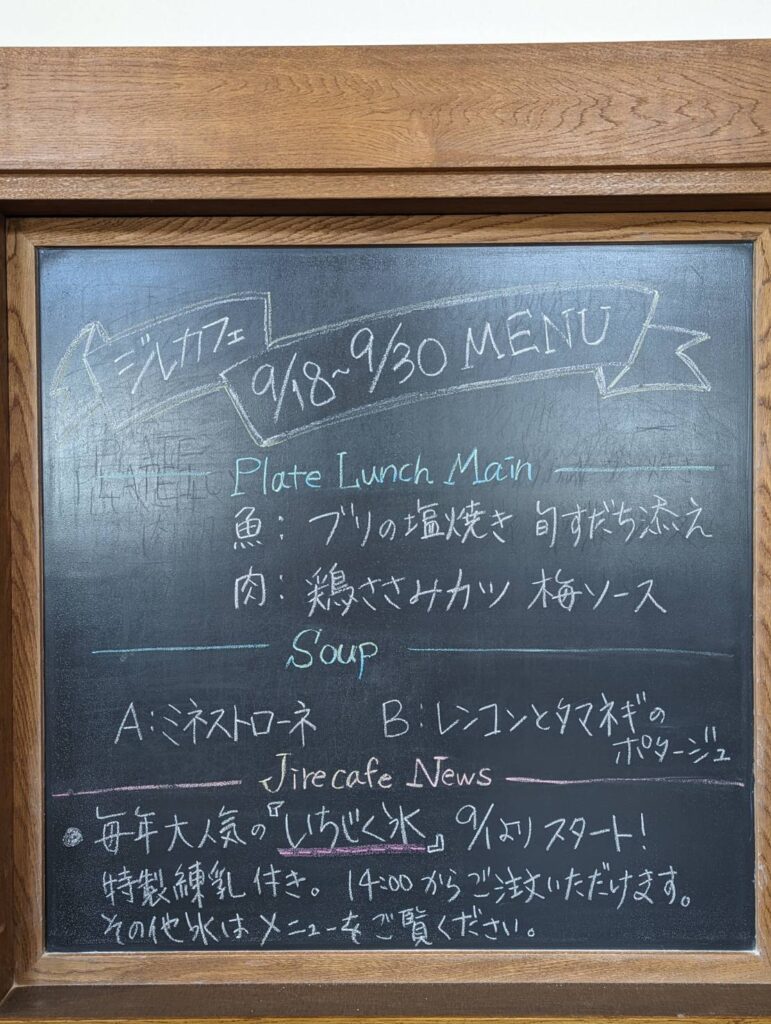 ジルカフェ
9/18~9/30 MENU
Plate Lunch Main
魚: ブリの塩焼き 旬すだち添え
肉: 鶏ささみカツ 梅ソース
Soup
A:ミネストローネ B:レンコンとタマネギの
ポタージュ
Jirecafe News
●毎年大人気の『いちじく氷』9/1よりスタート!
特製練乳付き。14:00からご注文いただけます。
その他氷はメニューをご覧ください。